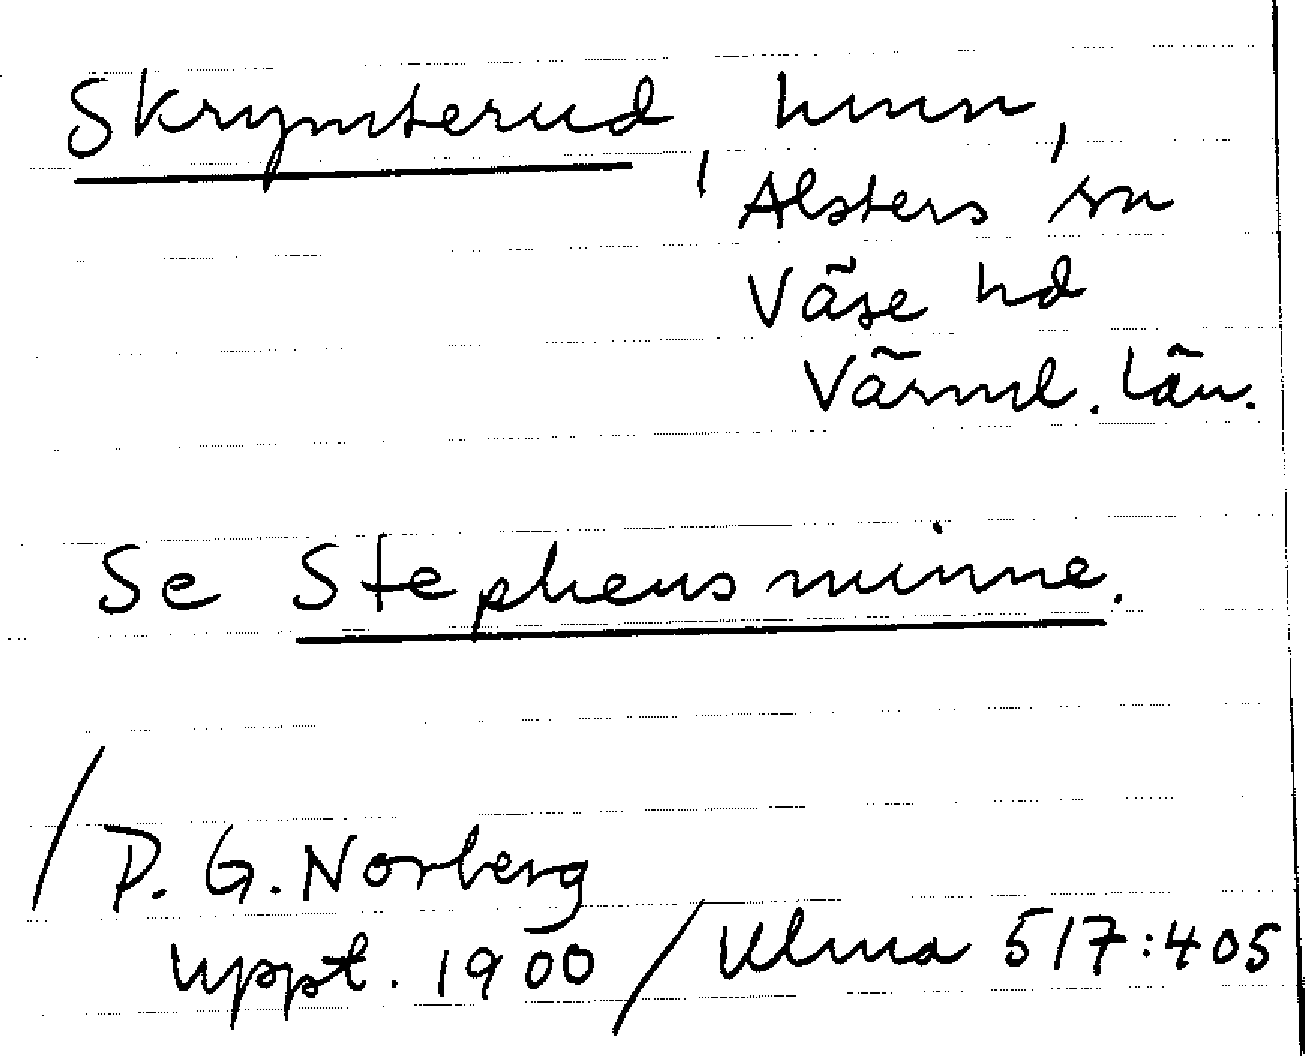 Skrymterud, hmn,
Alsters sn
Väse hd
Värml. län.
Se Stephensminne.
/ P. G. Norberg
uppt. 1900 / Ulma 517:405